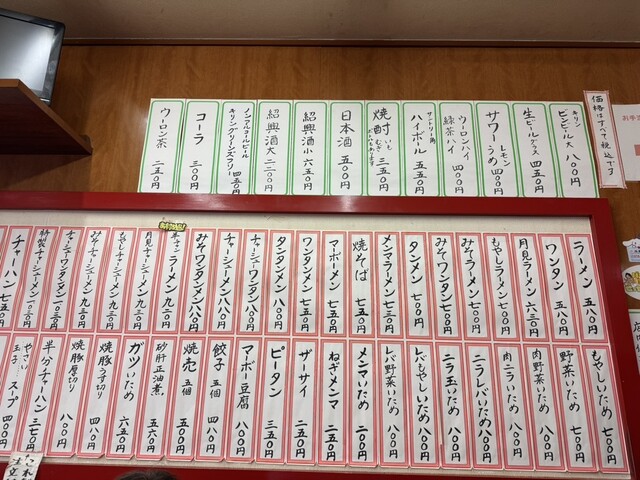 キリン ビンビール 大 八〇〇円
生ビール グラス 四五〇円
サワー レモン うめ 四五〇円
ウーロンハイ 緑茶ハイ 四〇〇円
サントリー角 ハイボール 五五〇円
焼酎 いも むぎ 三五〇円
日本酒 五〇〇円
紹興酒 小 六五〇円
紹興酒 大 二二〇〇円
ノンアルコールビール キリングリーンズフリー 四五〇円
コーラ 三〇〇円
ウーロン茶 二五〇円
価格はすべて税込です
ラーメン 五八〇円
ワンタン 五八〇円
月見ラーメン 六三〇円
もやしラーメン 七〇〇円
みそラーメン 七〇〇円
みそワンタン 七〇〇円
タンメン 七〇〇円
メンマラーメン 七〇〇円
焼そば 七五〇円
マーボーメン 七五〇円
ワンタンメン 七五〇円
タンタンメン 八〇〇円
チャーシューワンタン 八〇〇円
チャーシューメン 八八〇円
みそワンタンメン 八八〇円
ラーメン 九三〇円
月見チャーシューメン 九三〇円
もやしチャーシューメン 九三〇円
みそチャーシューメン 九三〇円
チャーシューワンタンメン 一〇三〇円
特製チャーシューメン 一〇三〇円
チャーハン 七五〇円
もやしいため 七〇〇円
野菜いため 七〇〇円
肉野菜いため 八〇〇円
肉ニラいため 八〇〇円
ニラレバいため 八〇〇円
ニラ玉いため 八〇〇円
レバもやしいため 八〇〇円
レバ野菜いため 八〇〇円
メンマいため 二〇〇円
ねぎメンマ 二五〇円
ザーサイ 二五〇円
ピータン 三五〇円
マーボー豆腐 八〇〇円
餃子 五個 四八〇円
焼売 五個 五五〇円
砂肝正油煮 五五〇円
ガツいため 六五〇円
焼豚うす切り 四〇〇円
焼豚厚切り 八〇〇円
半分チャーハン 三七〇円
やさい 玉子 スープ 四〇〇円